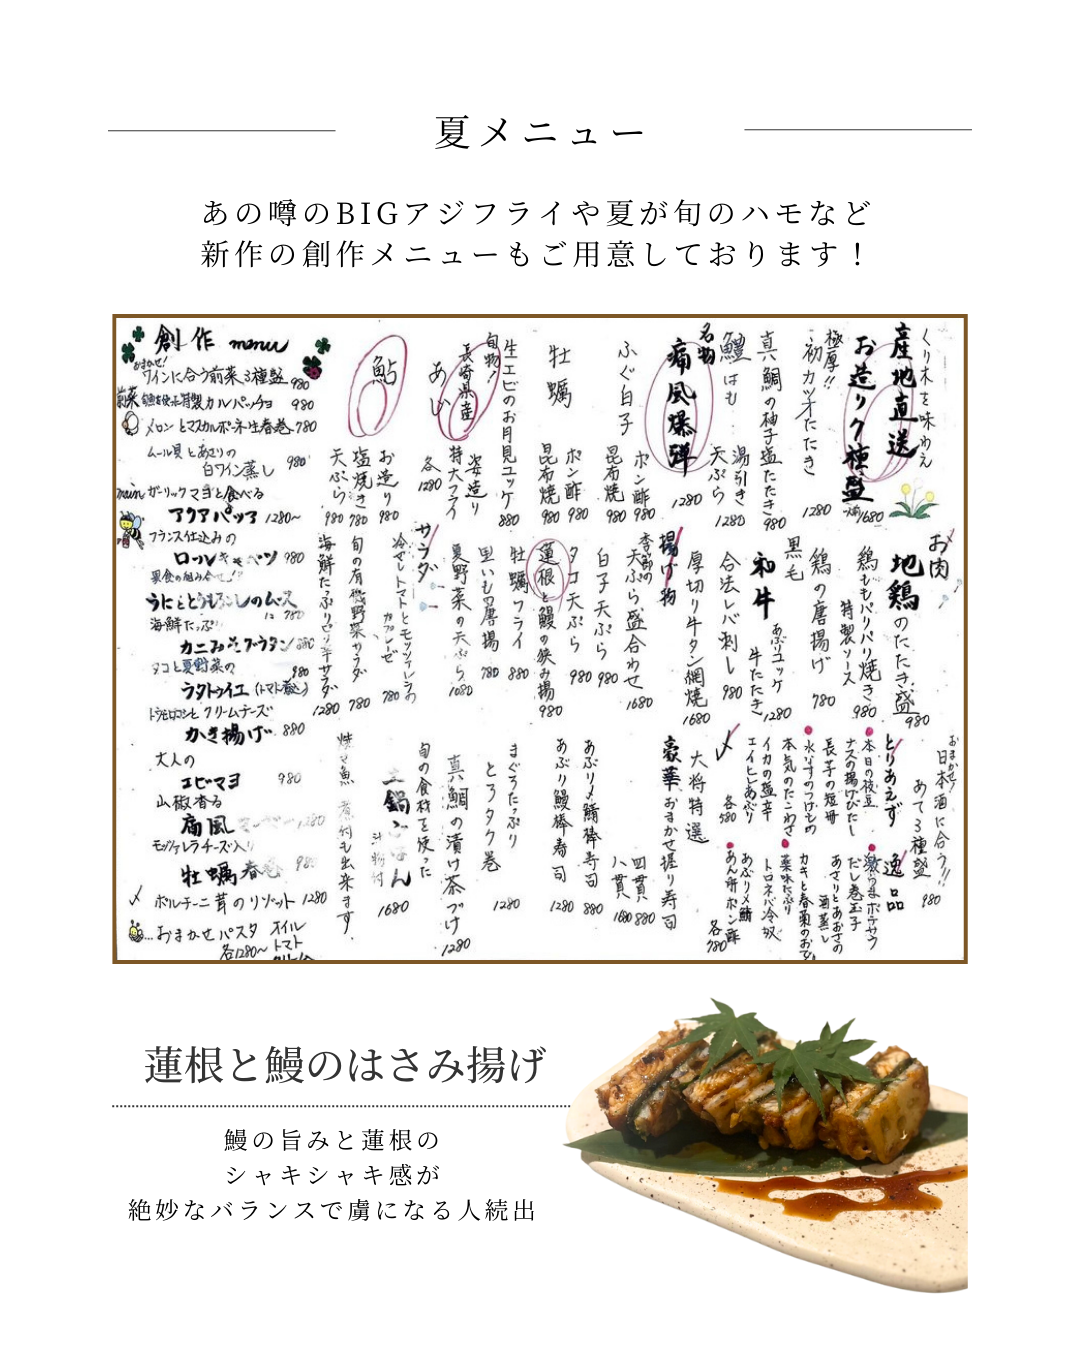 夏メニュー
あの噂のBIGアジフライや夏が旬のハモなど
新作の創作メニューもご用意しております！
くり木を味わえ
産地直送
お造り种盛
1680
極厚!!
初カツオたたき
1280
真鯛の柚子塩たたき
980
鱧はも
湯引き
天ぷら
1280
名物
痛風爆弾
1280
ふぐ白子
ポン酢
昆布焼
980
980
牡蠣
ポン酢
昆布焼
980
980
生エビのお月見ユッケ
880
旬物!
長崎県産
あじ
姿造り
特大フライ
各
1280
鮎
お造り
塩焼き
天ぷら
980
780
980
お肉
地鶏のたたき盛
980
鶏ももパリパリ焼き
特製ソース
980
鶏の唐揚げ
780
黒毛
和牛
あぶりユッケ
牛たたき
1280
合法レバ刺し
980
厚切り牛タン網焼
1680
揚げ物
季節の
天ぷら盛合わせ
1680
白子天ぷら
980
タコ天ぷら
980
蓮根と鰻の挟み揚
980
牡蠣フライ
880
里いもの唐揚
780
夏野菜の天ぷら
1080
サラダ
冷やしトマトとモッツァレラの
カプレーゼ
780
旬の有機野菜サラダ
780
海鮮たっぷりピリ辛サラダ
1280
おまかせ!
日本酒に合う!!
あて3種盛
980
とりあえず
本日の枝豆
ナスの揚げびたし
長芋の短冊
水なすのつけもの
本気のたこわさ
イカの塩辛
エイヒレあぶり
各
580
逸品
激うまポテサラ
だし巻玉子
あさりとあおさの
酒蒸し
カキと春菊のおで
薬味たっぷり
トロネバ冷奴
あぶり〆鯖
あん肝ポン酢
各
780
大将特選
豪華おまかせ握り寿司
四貫 880
八貫 1680
あぶり〆鯖棒寿司
880
あぶり鰻棒寿司
1280
まぐろたっぷり
とろタク巻
1280
真鯛の漬け茶づけ
1280
旬の食材を使った
土鍋ごはん
汁物付
1680
焼き魚 煮付も出来ます。
創作 menu
おまかせ!
ワインに合う前菜3種盛 980
前菜
特製カルパッチョ 980
メロンとマスカルポーネ生春巻 780
ムール貝とあさりの
白ワイン蒸し 980
main ガーリックマヨと食べる
アクアパッツァ 1280~
フランス仕込みの
ロールキャベツ 980
異色の組み合せ!!
うにととうもろこしのムース
780
海鮮たっぷ
カニみそグラタン 880
タコと夏野菜の
980
ラタトゥイエ (トマト煮込)
トウモロコシとクリームチーズ
かき揚げ 880
大人の
エビマヨ 980
山椒香る
麻婆
1280
モッツァレラチーズ入り
牡蠣春巻 980
ポルチーニ茸のリゾット 1280
…おまかせパスタ
各1280~
オイル
トマト
クリーム
蓮根と鰻のはさみ揚げ
鰻の旨みと蓮根の
シャキシャキ感が
絶妙なバランスで虜になる人続出